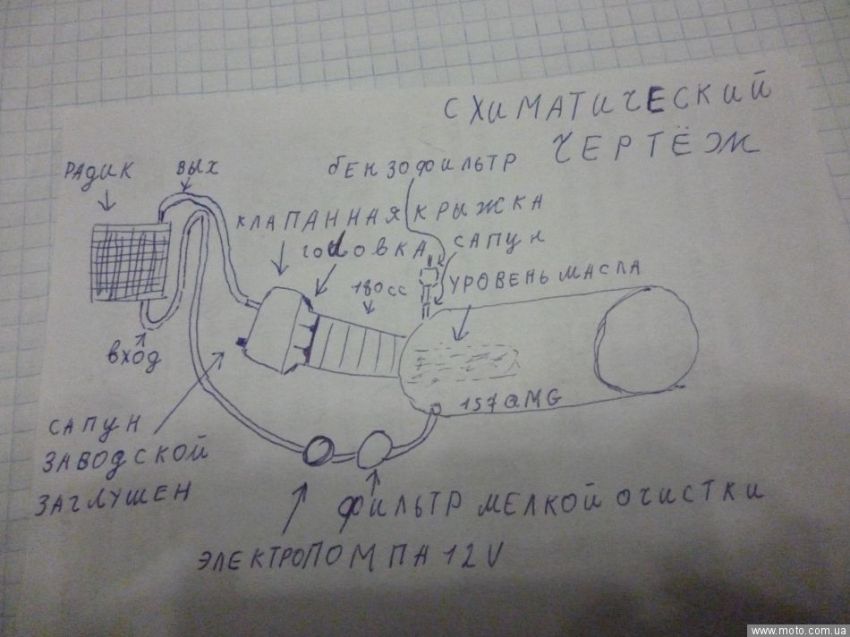 СХИМАТИЧЕСКИЙ
ЧЕРТЁЖ
РАДИК
ВЫХ
бЕНЗОФИЛЬТР
КЛАПАННАЯ КРЫЖКА
ГОЛОВКА
САПУН
180сс
УРОВЕНЬ МАСЛА
ВХОД
157QMG
САПУН
ЗАВОДСКОЙ
ЗАГЛУШЕН
ФИЛЬТР МЕЛКОЙ ОЧИСТКИ
ЭЛЕКТРОПОМПА 12V
www.moto.com.ua